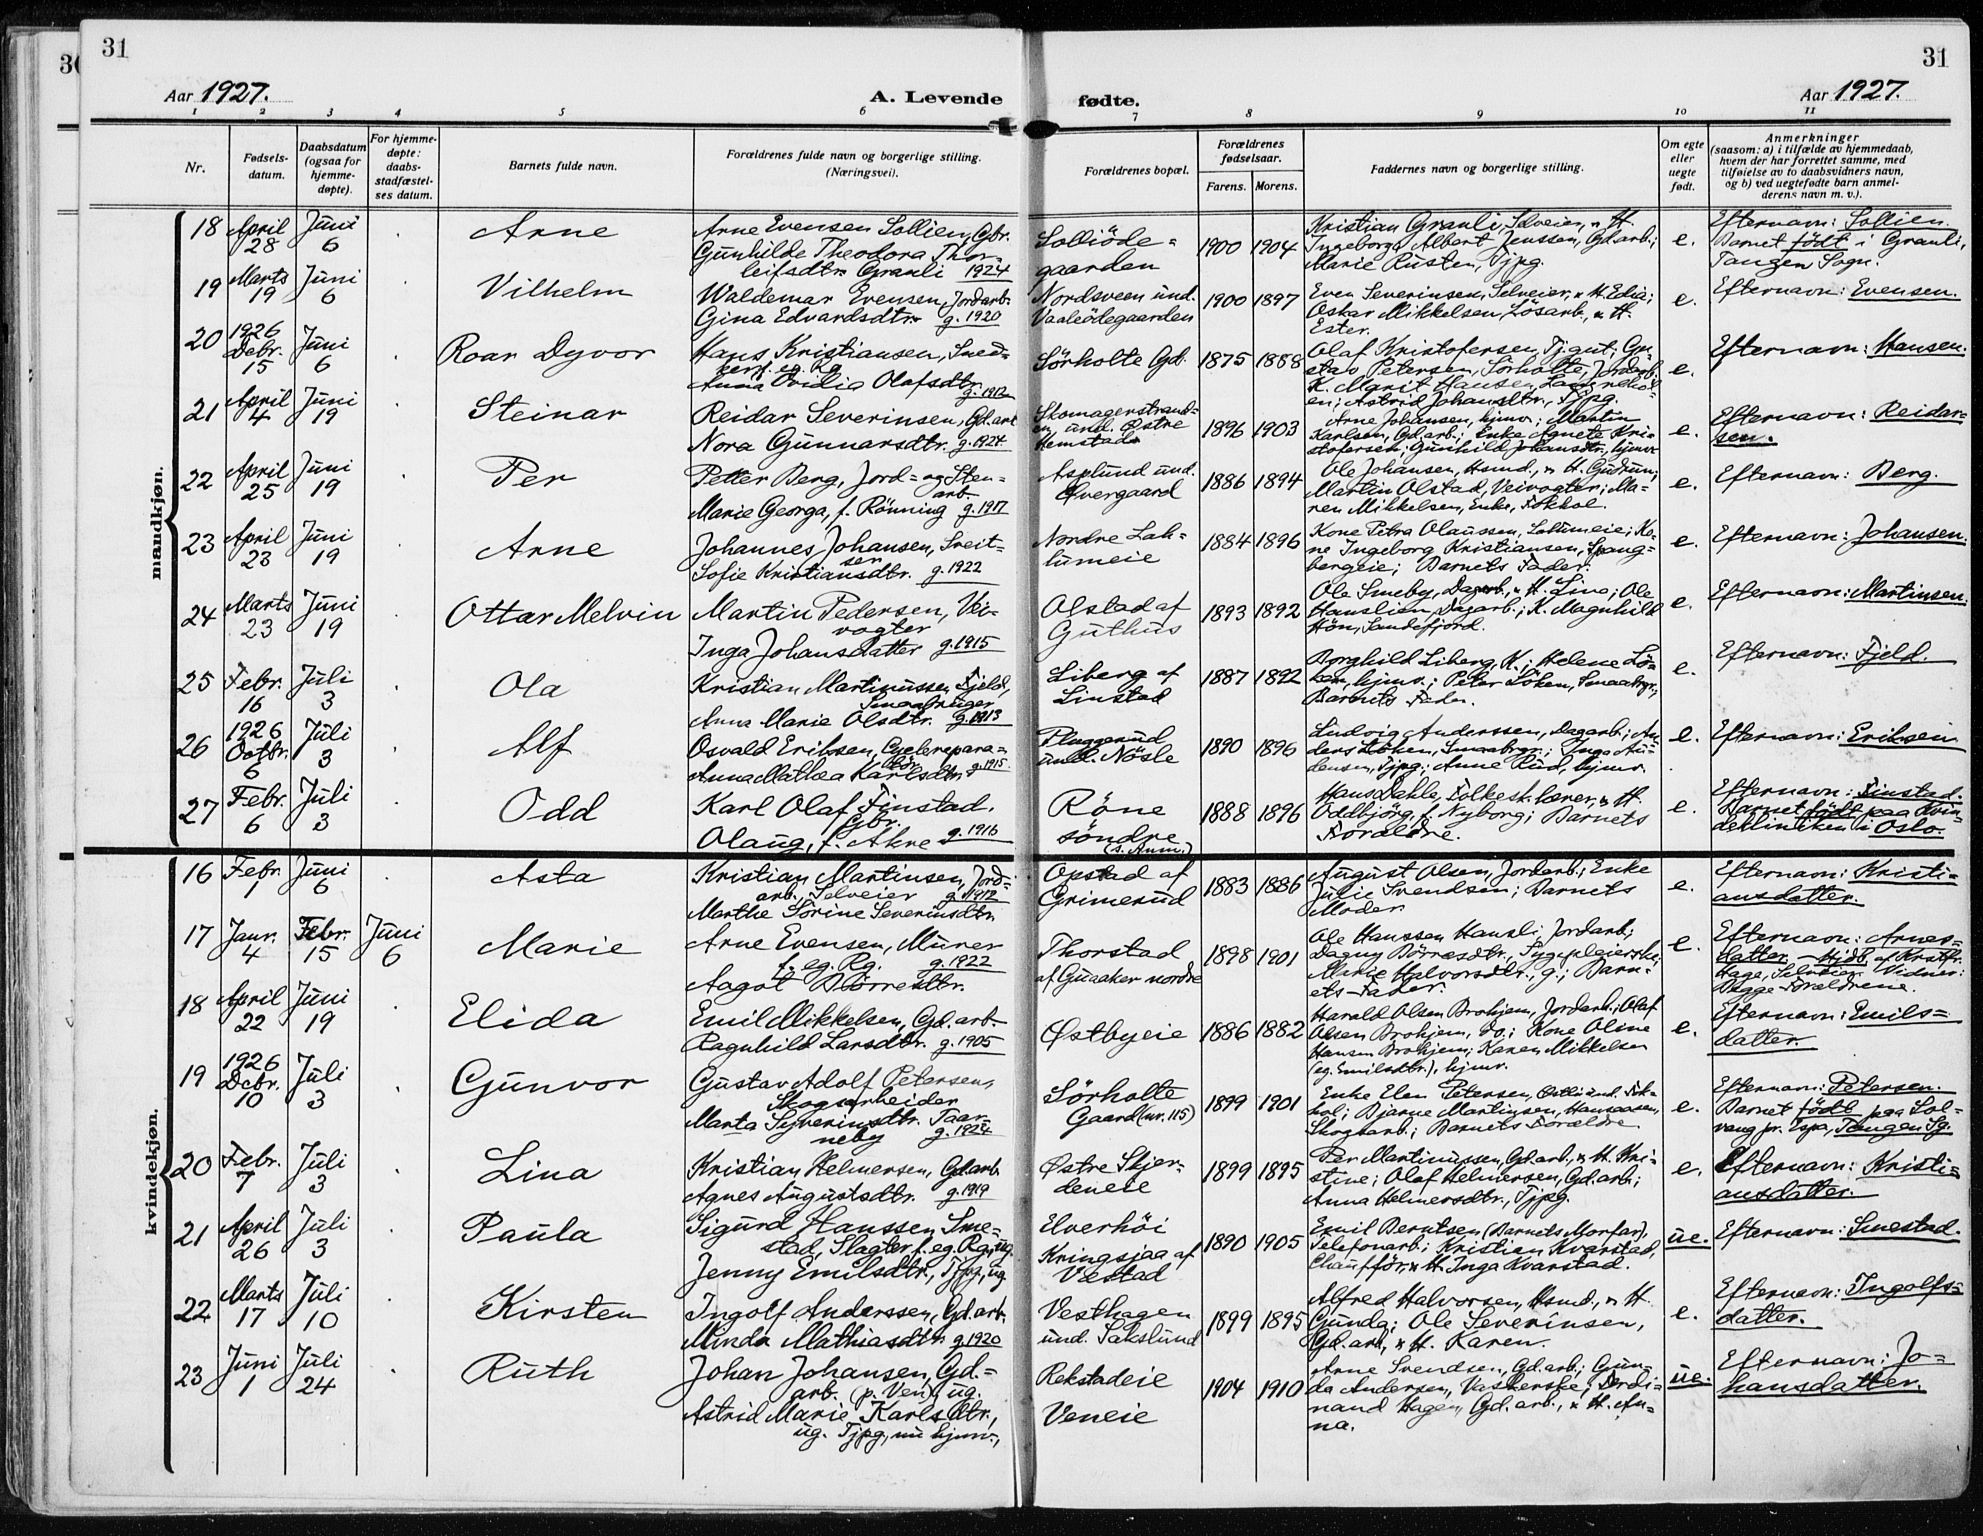 31
31
30
Aar 1927.
A. Levende fødte.
Aar 1927.
1 2 3 4 5 6 7 8 9 10 11
Nr.
Fødsels-
datum.
Daabsdatum
(ogsaa for
hjemme-
døpte).
For hjemme-
døpte:
daabs-
stadfæstel-
ses datum.
Barnets fulde navn.
Forældrenes fulde navn og borgerlige stilling.
(Næringsvei).
Forældrenes bopæl.
Forældrenes
fødselsaar.
Farens. Morens.
Faddernes navn og borgerlige stilling.
Om egte
eller
uegte
født.
Anmerkninger
(saasom: a) i tilfælde av hjemmedaab,
hvem der har forrettet samme, med
tilføielse av to daabsvidners navn,
og b) ved uegtefødte barn anmel-
derens navn m. v.).
mandkjøn.
18 April 28 Juni 6 Arne
Arne Evensen Sollien, Gbr.
Gunhilde Theodora Thor-
leifsdtr. Grauli 1924
Solliöde-
gaarden
1900 1904
Kristian Grauli, Selveier, & H.
Ingeborg; Albert Jenssen, Gd.arb.;
Marie Rusten, Tjpg.
e.
Efternavn: Sollien.
Barnet födt i Grauli,
Tangen Sogn.
19 Marts 19 Juni 6 Vilhelm
Waldemar Evensen, Jordarb.
Gina Edvardsdtr. g. 1920
Nordsveen und.
Vaaleödegaarden
1900 1897
Even Severinsen, Selveier, & H. Edia;
Oskar Mikkelsen, Lösarb., & H.
Ester.
e.
Efternavn: Evensen.
20 1926 Debr. 15 Juni 6 Roar Dyvor
Hans Kristiansen, Sned-
kerf. eg. Rg.
Anna Ovidia Olafsdtr.
g. 1912
Sörholte Gd.
1875 1888
Olaf Kristofersen, Tj.gut; Gu-
stav Petersen, Sörholte, Jordarb.
K. Marit Hansen,
en; Astrid Johansdtr., Tjpg.
e.
Efternavn: Hansen.
21 April 4 Juni 19 Steinar
Reidar Severinsen, Gd.arb.
Nora Gunnarsdtr. g. 1924
Skomagerstrand-
en und. Östre
Hemstad
1896 1903
Arne Johansen, hjmv.; Martin
Karlsen, Gd.arb.; Enke Agnete Kri-
stofersen; Gunhild Johansdtr., hjmv.
e.
Efternavn: Reidar-
sen.
22 April 25 Juni 19 Per
Petter Berg, Jord- og Sten-
arb.
Marie Georga, f. Rönning g. 1917
Asplund und.
Övergaard
1886 1894
Ole Johansen, Hsmd., & H. Gudrun;
Martin Olstad, Veivogter; Ma-
ren Mikkelsen, Enke, Fokhol.
e.
Efternavn: Berg.
23 April 23 Juni 19 Arne
Johannes Johansen, Sveit-
ser
Sofie Kristiansdtr. g. 1922
Nordre Lak-
lumeie
1884 1896
Kone Petra Olaussen, Laklumeie; Ko-
ne Ingeborg Kristiansen, Spang-
bergeie; Barnets Fader.
e.
Efternavn: Johansen.
24 Marts 23 Juni 19 Ottar Melvin
Martin Pedersen, Vei-
vogter
Inga Johansdatter g. 1915
Olstad af
Guthus
1893 1892
Ole Smeby, Dagarb., & H. Lina; Ole
Hanslien, Dagarb.; K. Magnhild
Hön, Sandefjord.
e.
Efternavn: Martinsen.
25 Febr. 16 Juli 3 Ola
Kristian Martinussen Fjeld,
Smaabruger
Anna Marie Olsdtr. g. 1913
Liberg af
Linstad
1887 1892
Borghild Liberg, K.; Helene Lö-
ken, hjmv.; Peter Löken, Smaabrgr.;
Barnets Fader.
e.
Efternavn: Fjeld.
26 1926 Octbr. 6 Juli 3 Alf
Osvald Eriksen, Cyclerepara-
tör
Anna Mathea Karlsdtr. g. 1915
Pluggerud
und. Nösle
1890 1896
Ludvig Anderssen, Dagarb.; An-
ders Löken, Smaabrgr.; Inga Au-
densen, Tjpg.; Anne Rud, hjmv.
e.
Efternavn: Eriksen.
27 Febr. 6 Juli 3 Odd
Karl Olaf Finstad,
Gbr.
Olaug, f. Akre g. 1916
Röne
söndre
(s. Anm.)
1888 1896
Hans Dehle, Folkesk.lærer, & H.
Oddbjörg, f. Nyborg; Barnets
Forældre.
e.
Efternavn: Finstad.
Barnet födt paa Kvin-
dekliniken i Oslo.
kvindekjøn.
16 Febr. 1 Juni 6 Asta
Kristian Martinsen, Jord-
arb., Selveier g. 1912
Marthe Sörine Severinsdtr.
Opstad af
Grimerud
1883 1886
August Olsen, Jordarb.; Enke
Julie Svendsen; Barnets
Moder.
e.
Efternavn: Kristi-
ansdatter.
17 Janr. 4 Febr. 15 Juni 6 Marie
Arne Evensen, Murer
f. eg. Rg. g. 1922
Aagot Börresdtr.
Thorstad
af Guaaker nordre
1898 1901
Ole Hanssen Hansli, Jordarb.;
Dagny Börresdtr., Sygepleierske;
Marie Halvorsdtr., g.; Barn-
ets Fader.
e.
Efternavn: Arnes-
datter. Hjdb. af Kristfr.
Hage, Selveier. Vidner:
Begge Forældrene.
18 April 22 Juni 19 Elida
Emil Mikkelsen, Gd.arb.
Ragnhild Larsdtr. g. 1905
Östbyeie
1886 1882
Harald Olsen Brohjem, Jordarb.; Olaf
Olsen Brohjem, do; Kone Oline
Hansen Brohjem; Karen Mikkelsen
(eg. Emilsdtr.), hjmv.
e.
Efternavn: Emils-
datter.
19 1926 Debr. 10 Juli 3 Gunvor
Gustav Adolf Petersen,
Skogsarbeider
Marta Syverinsdtr. Taar-
neby g. 1924
Sörholte
Gaard (nr. 115)
1899 1901
Enke Elen Petersen, Östli und. Fok-
hol; Bjarne Martinsen, Hansaasen,
Skogsarb.; Barnets Forældre
e.
Efternavn: Petersen.
Barnet födt paa Sol-
vang pr. Espa, Tangen Sg.
20 Febr. 7 Juli 3 Lina
Kristian Helmersen, Gd.arb.
Agnes Augustsdtr. g. 1919
Östre Skjer-
deneie
1899 1895
Per Martinussen, Gd.arb., & H. Kri-
stine; Olaf Helmersen, Gd.arb.;
Anna Helmersdtr., Tjpg.
e.
Efternavn: Kristi-
ansdatter.
21 April 26 Juli 3 Paula
Sigurd Hanssen Sme-
stad, Slagter f. eg. Rg., ug.
Jenny Emilsdtr., Tjpg., ug
Elverhöi
Kringsjaa af
Vestad
1890 1905
Emil Berntsen (Barnets Morfar),
Telefonarb.; Kristian Kvarstad,
Chaufför, & H. Inga Kvarstad.
ue.
Efternavn: Smestad.
22 Marts 17 Juli 10 Kirsten
Ingolf Anderssen, Gd.arb.
Minda Mathiasdtr. g. 1920
Vesthagen
und. Sakslund
1899 1895
Alfred Halvorsen, Hsmd., & H.
Gunda; Ole Severinsen,
Gd.arb., & H. Karen.
e.
Efternavn: Ingolfs-
datter.
23 Juni 1 Juli 24 Ruth
Johan Johansen, Gd.-
arb. (p. Ven), ug.
Astrid Marie Karlsdtr.,
ug. Tjpg., nu hjmv.,
Rekstadeie
Veneie
1904 1910
Arne Svendsen, Gd.arb.; Gun-
da Andersen, Vaskerske; Ferdi-
nand Hagen, Gd.arb., & H. An-
na.
ue.
Efternavn: Jo-
hansdatter.